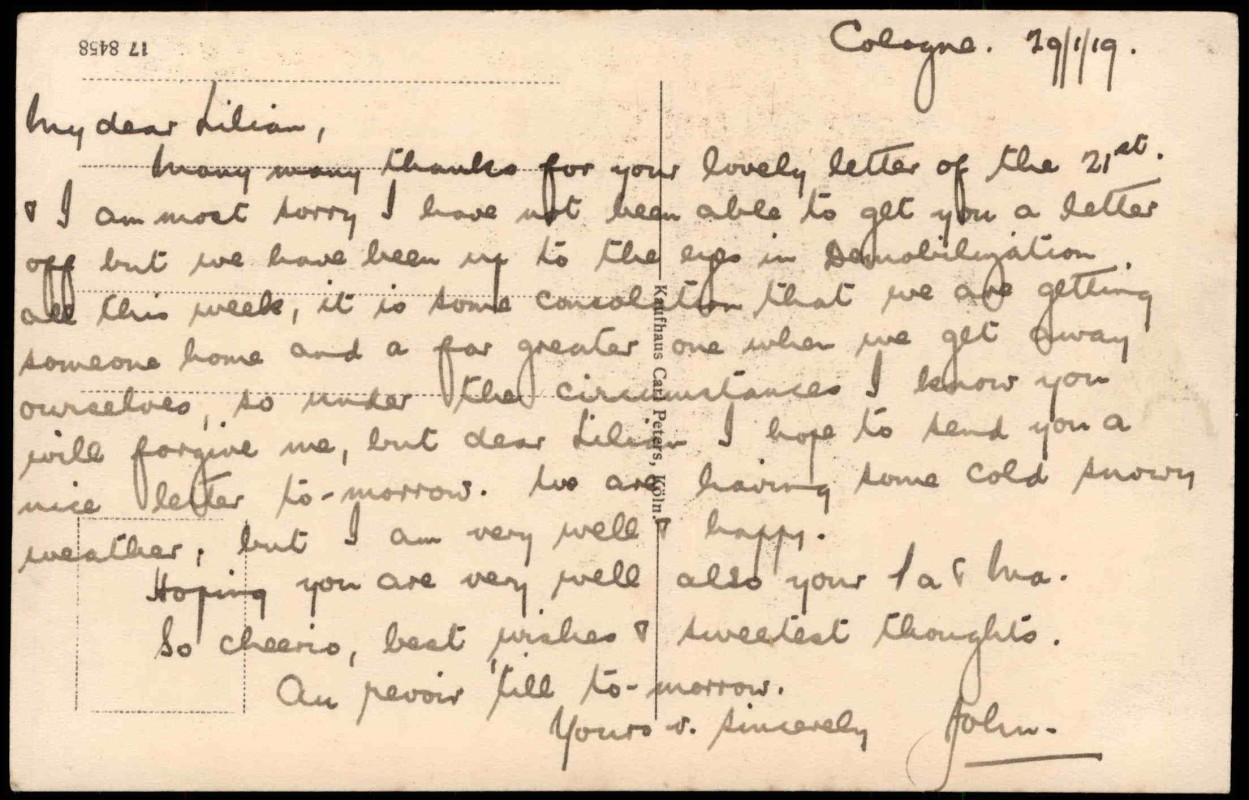 17 8458
Cologne. 29/1/19.
My dear Lilian,
Many many thanks for your lovely letter of the 21st.
& I am most sorry I have not been able to get you a letter
off but we have been up to the eyes in Demobilization
all this week, it is some consolation that we are getting
someone home and a far greater one when we get away
ourselves, so under the circumstances I know you
will forgive me, but dear Lilian I hope to send you a
nice letter to-morrow. We are having some cold snowy
weather, but I am very well & happy.
Hoping you are very well also your Pa & Ma.
So cheerio, best wishes & sweetest thoughts.
Au revoir 'till to-morrow.
Yours v. sincerely John.
Kaufhaus Carl Peters, Köln.